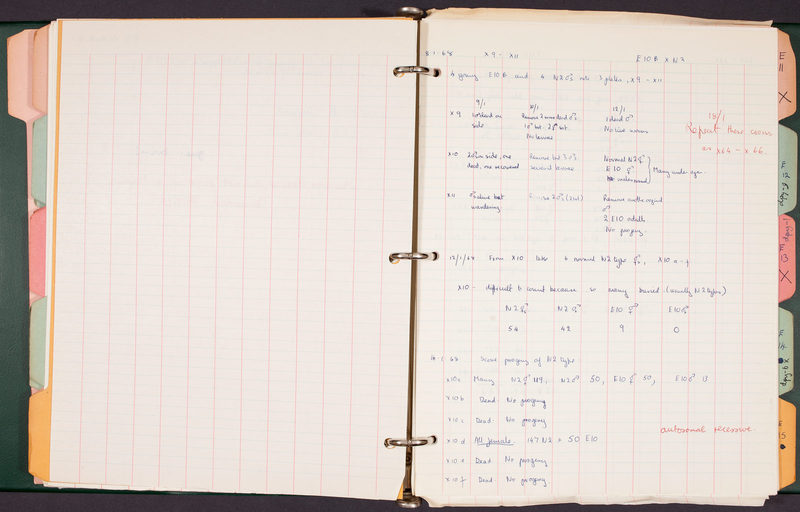 8.1.68 x9 - x11 E10B x N2
4 young E10B and 4 N2♂s into 3 plates, x9 - x11
9/1 10/1 12/1
x9 on side Remove 2 dead ♂s No larvae 1 dead ♂ No live worms
15/1
Repeat these crosses
as x64 - x66.
x10 2♂s on side, one dead, one recovered Remove 3♂ several larvae Normal N2 ⚥ E10 ⚥ Many under age
x11 ♂s alive but wandering 2♂s Remove another ♂ 2 E10 adults No progeny
12/1/68 From X10 take 6 normal N2 type ⚥, X10 a-f
x10 - difficult to count because so many buried (mostly N2 types)
N2⚥ N2♂ E10⚥ E10♂
54 42 9 0
1.68 Score progeny of N2 type
x10a Many N2⚥ 119, N2♂ 50, E10⚥ 50, E10♂ 13
x10b Dead No progeny
x10c Dead No progeny
autosomal recessive.
x10d All females. 147 N2 50 E10
x10e Dead No progeny
x10f Dead No progeny
E
11
X
dpy-1
E
13
X
E
14
dpy-6 X
E
15